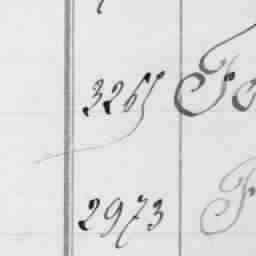 3265 Fo
2973 F